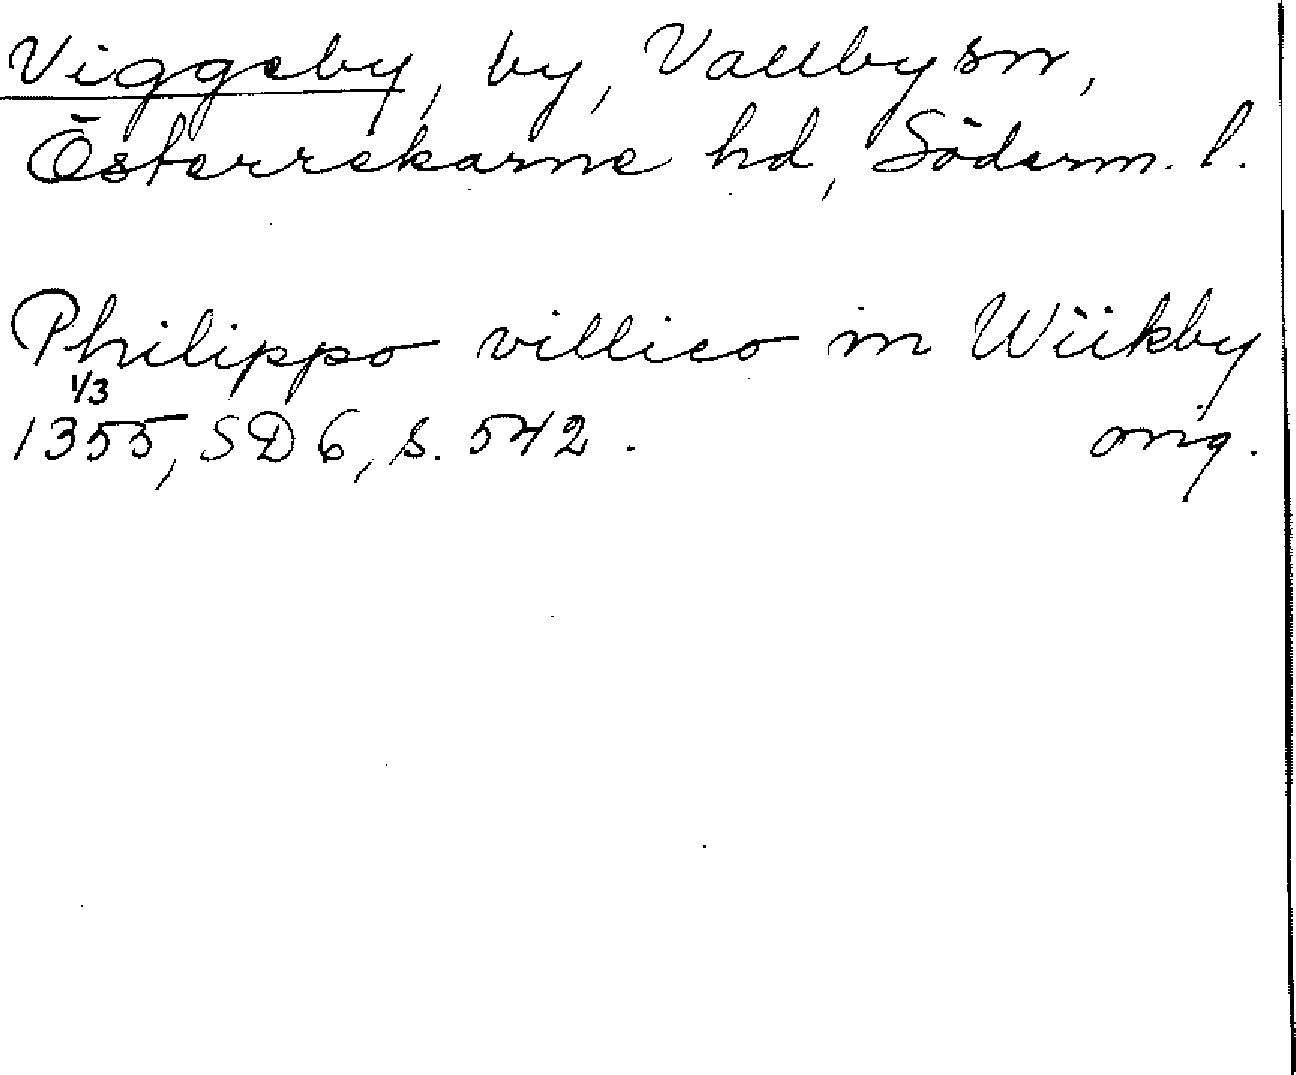 Viggeby, by, Vallby sn,
Österrekarne hd, Söderm. l.
Philippo villico in Wiikby
1/3
1355, SD 6, s. 542. orig.